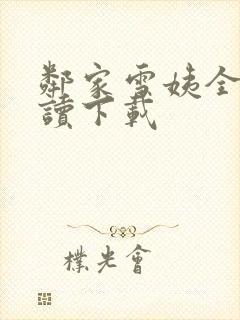 鄰家雪姨全
讀下載
樸光會